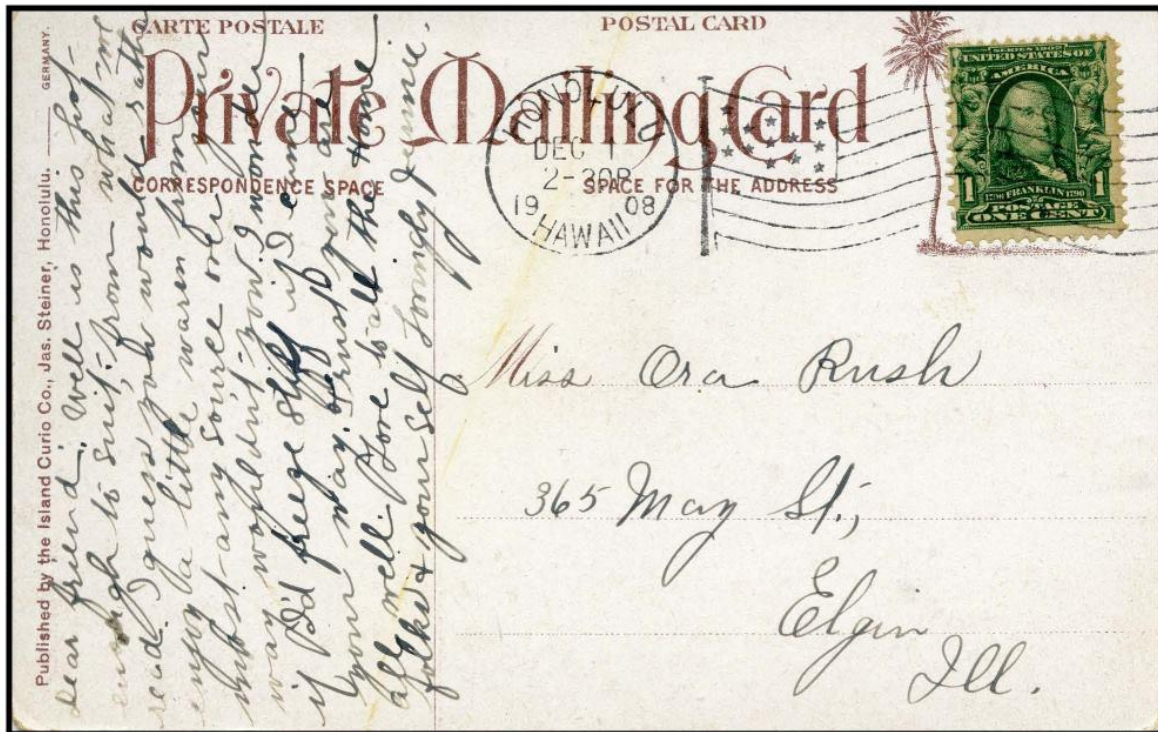 CARTE POSTALE
POSTAL CARD
Private Mailing Card
CORRESPONDENCE SPACE
SPACE FOR THE ADDRESS
HONOLULU
DEC 1
2-30P
1908
HAWAII
SERIES 1902
UNITED STATES OF
AMERICA
1706 FRANKLIN 1790
1 POSTAGE 1
ONE CENT
Published by the Island Curio Co., Jas. Steiner, Honolulu.
GERMANY.
dear friend; Well is this hot-
enough to suit, from what we
read. I guess you would rather
enjoy a little warm from
most any source over your
way wouldn't you. I wonder
if I'd freege stiff if I came
your way. Trust you are
all well. Love to all the home
folks & your self Lovingly Jennie.
Miss Ora Rush
365 May St.,
Elgin
Ill.